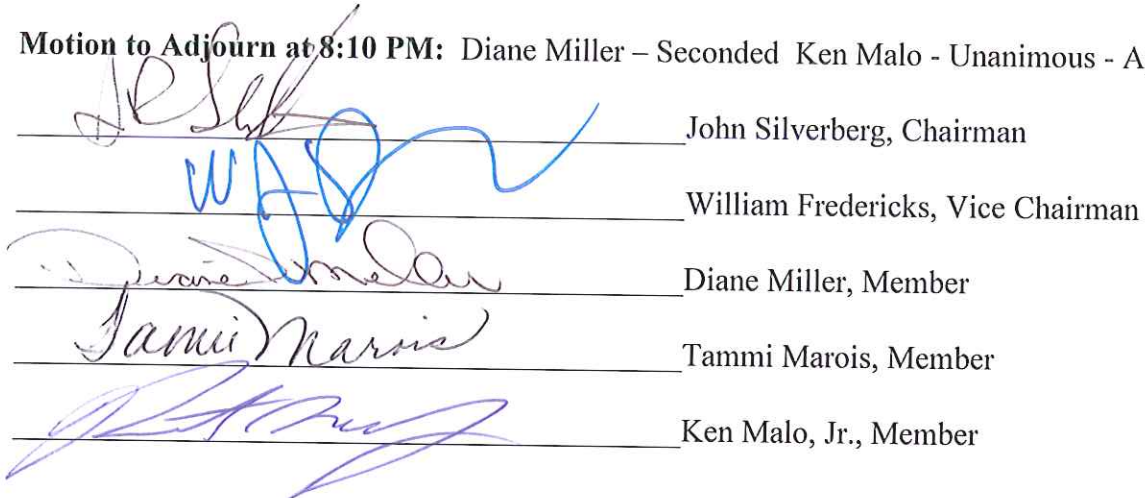 Motion to Adjourn at 8:10 PM: Diane Miller – Seconded Ken Malo - Unanimous - A
John Silverberg, Chairman
William Fredericks, Vice Chairman
Diane Miller
Diane Miller, Member
Tammi Marois
Tammi Marois, Member
Ken Malo, Jr., Member